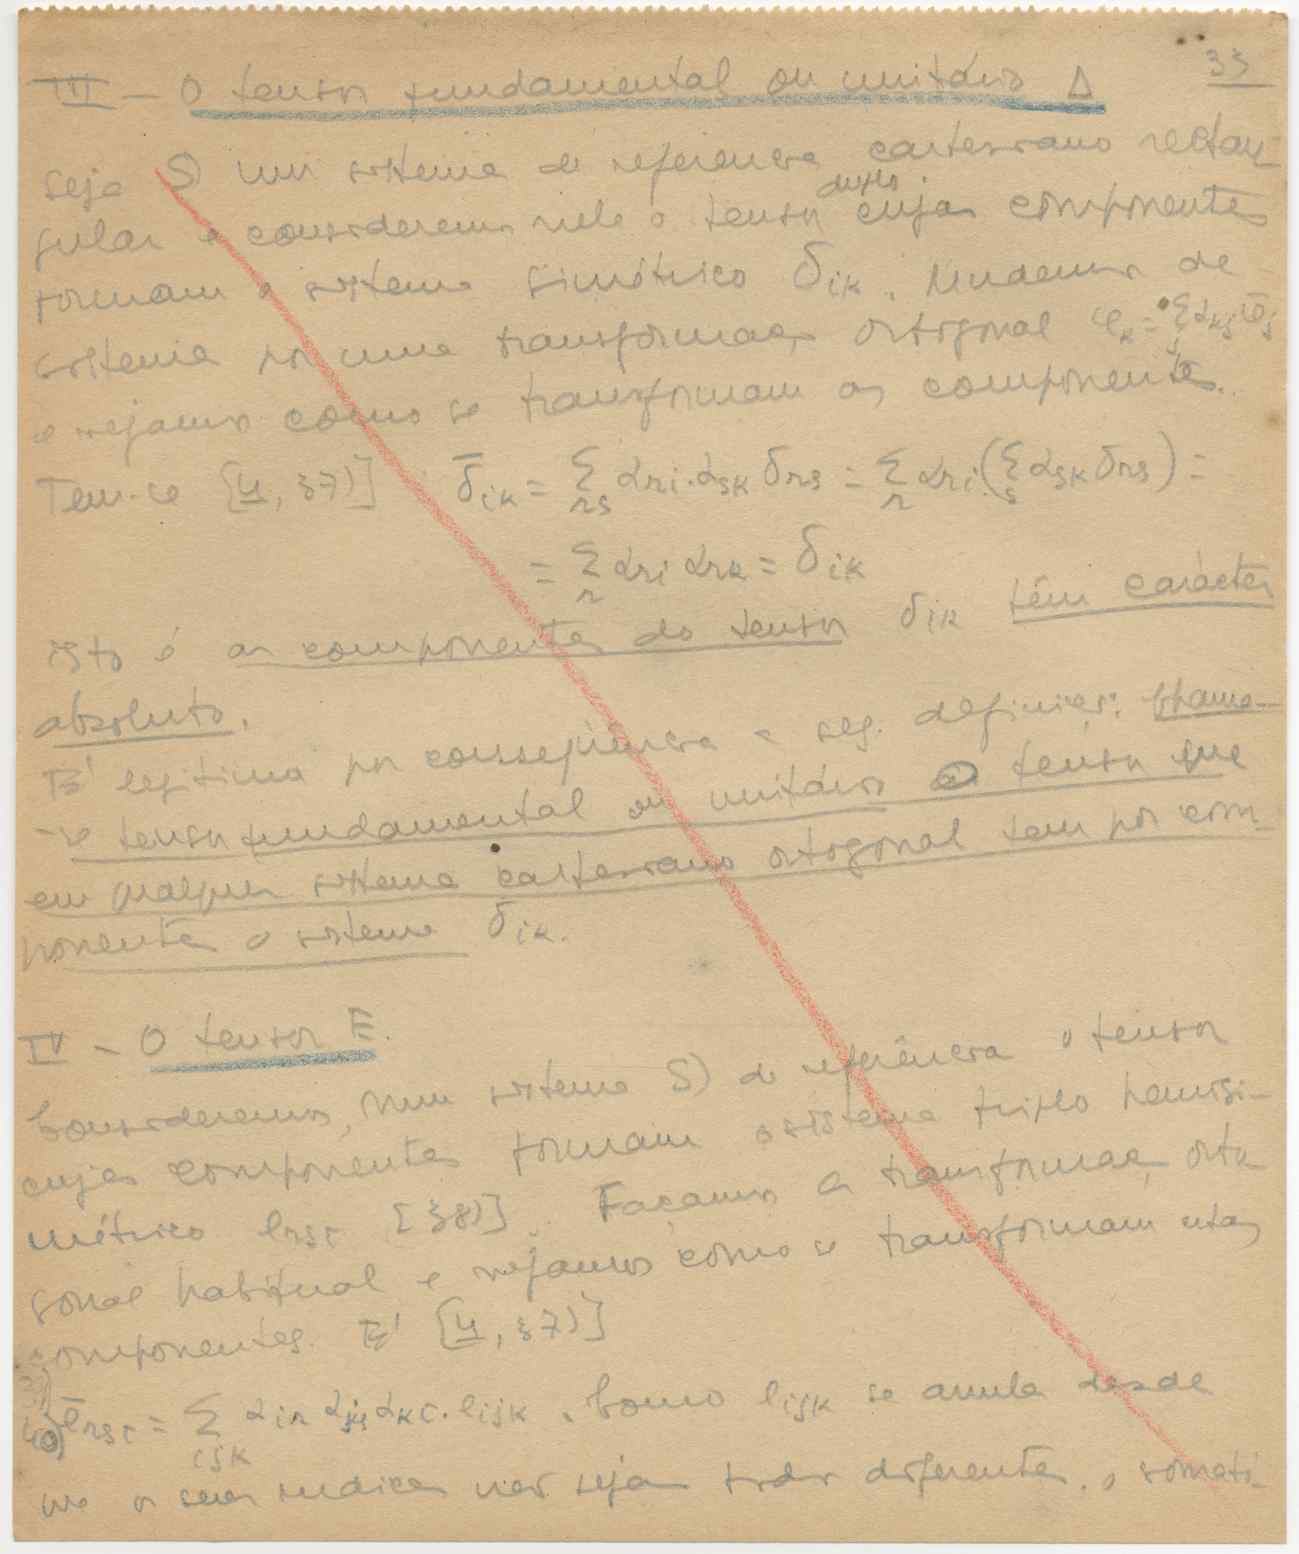 33
III – O tensor fundamental ou unitário Δ
Seja S) um sistema de referência cartesiano rectan-
gular e consideremos nele o tensor duplo cujas componentes
formam o sistema simétrico δik. Mudemos de
sistema por uma transformação ortogonal φk = Σj αkj φ̄j
e vejamos como se transformam as componentes.
Tem-se [4, §7)] δ̄ik = Σrs αri.αsk δrs = Σr αri.(Σs αsk δrs) =
= Σr αri αrk = δik
isto é as componentes do tensor δik têm carácter
absoluto.
É legítima por conseqüência a seg. definição: chama-
-se tensor fundamental ou unitário o tensor que
em qualquer sistema cartesiano ortogonal tem por com-
ponentes o sistema δik.
IV – O tensor E.
Consideremos, num sistema S) de referência o tensor
cujas componentes formam o sistema triplo hemisi-
métrico erst [§8)]. Façamos a transformação orto-
gonal habitual e vejamos como se transformam estas
componentes. É [4, §7)]
ērst = Σijk αir αjs αkt. eijk. Como eijk se anula desde
que os seus indices não sejam todos diferentes, o somató-